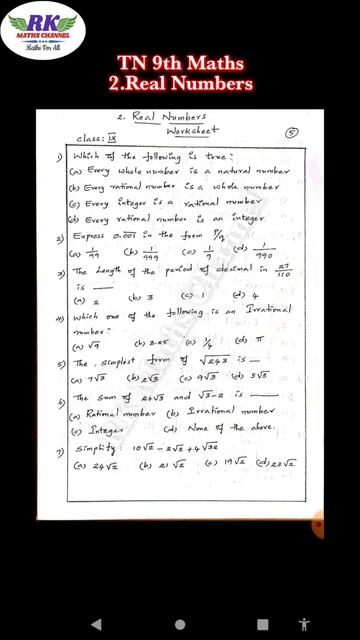 RK
MATHS CHANNEL
Maths For All
TN 9th Maths
2.Real Numbers
2. Real Numbers
Worksheet
Class: IX
5
1) Which of the following is true?
(a) Every whole number is a natural number
(b) Every rational number is a whole number
(c) Every integer is a rational number
(d) Every rational number is an integer
2) Express 0.001 in the form P/q
(a) 1/99 (b) 1/999 (c) 1/9 (d) 1/990
3) The Length of the period of decimal in 27/110
is
(a) 2 (b) 3 (c) 1 (d) 4
4) Which one of the following is an Irrational
number?
(a) √9 (b) 3.25 (c) 1/4 (d) π
5) The simplest form of √243 is
(a) 7√3 (b) 2√3 (c) 9√3 (d) 5√3
6) The sum of 2+√3 and √3-2 is
(a) Rational number (b) Irrational number
(c) Integer (d) None of the above.
7) Simplify: 10√2 - 2√2 + 4√32
(a) 24√2 (b) 21√2 (c) 19√2 (d) 23√2